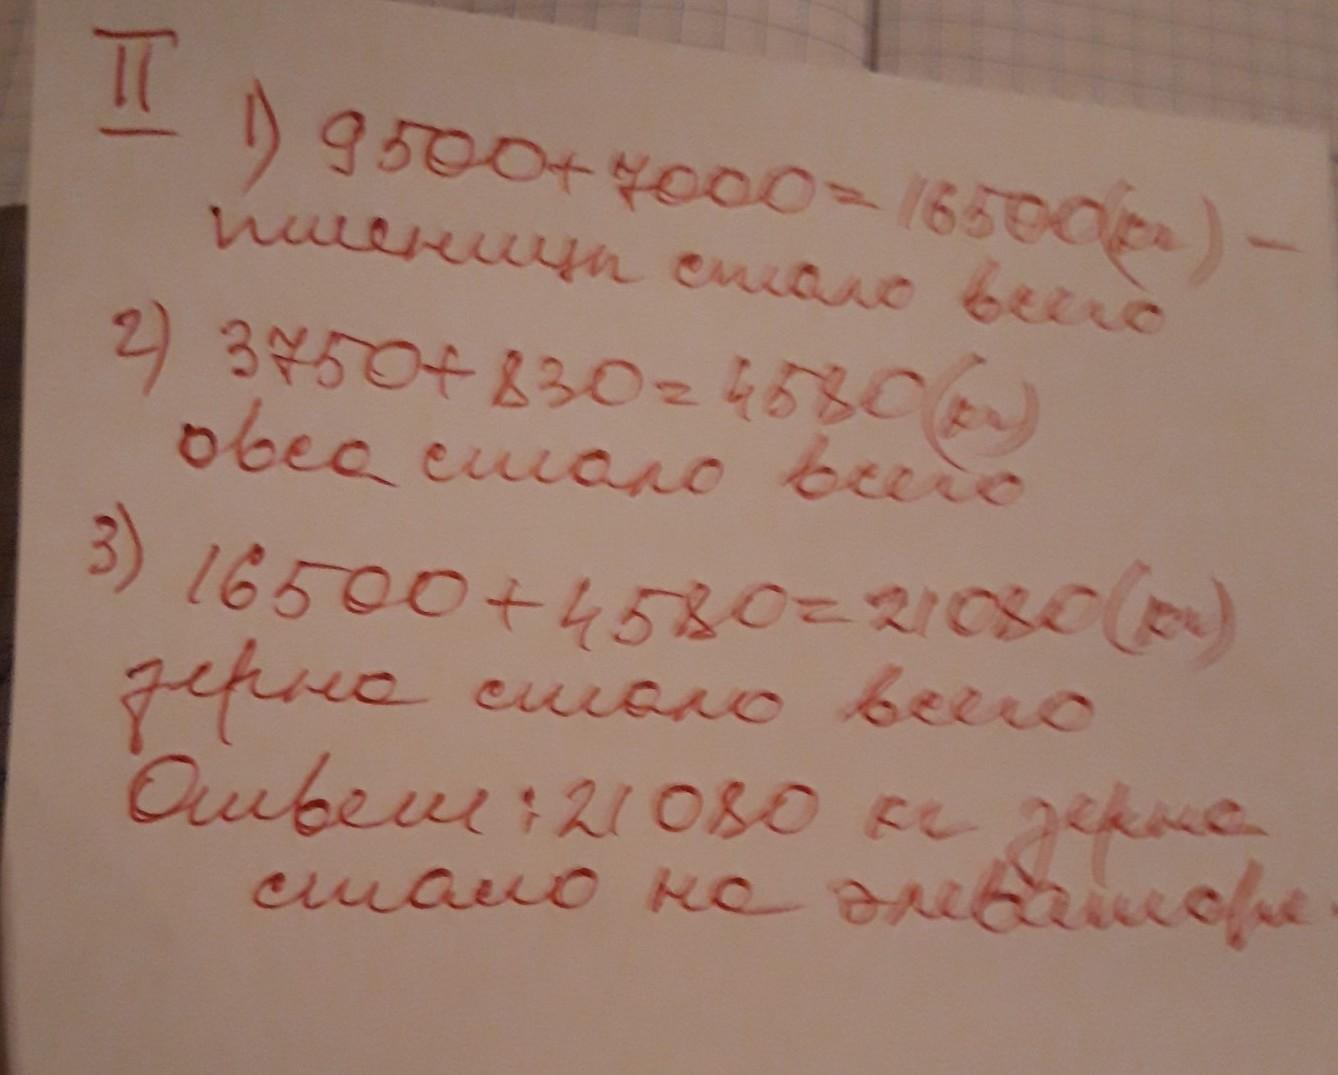 II
1) 9500+7000=16500(кг) –
пшеницы стало всего
2) 3750+830=4580(кг)
овса стало всего
3) 16500+4580=21080(кг)
зерна стало всего
Ответ: 21080 кг зерна
стало на элеваторе.